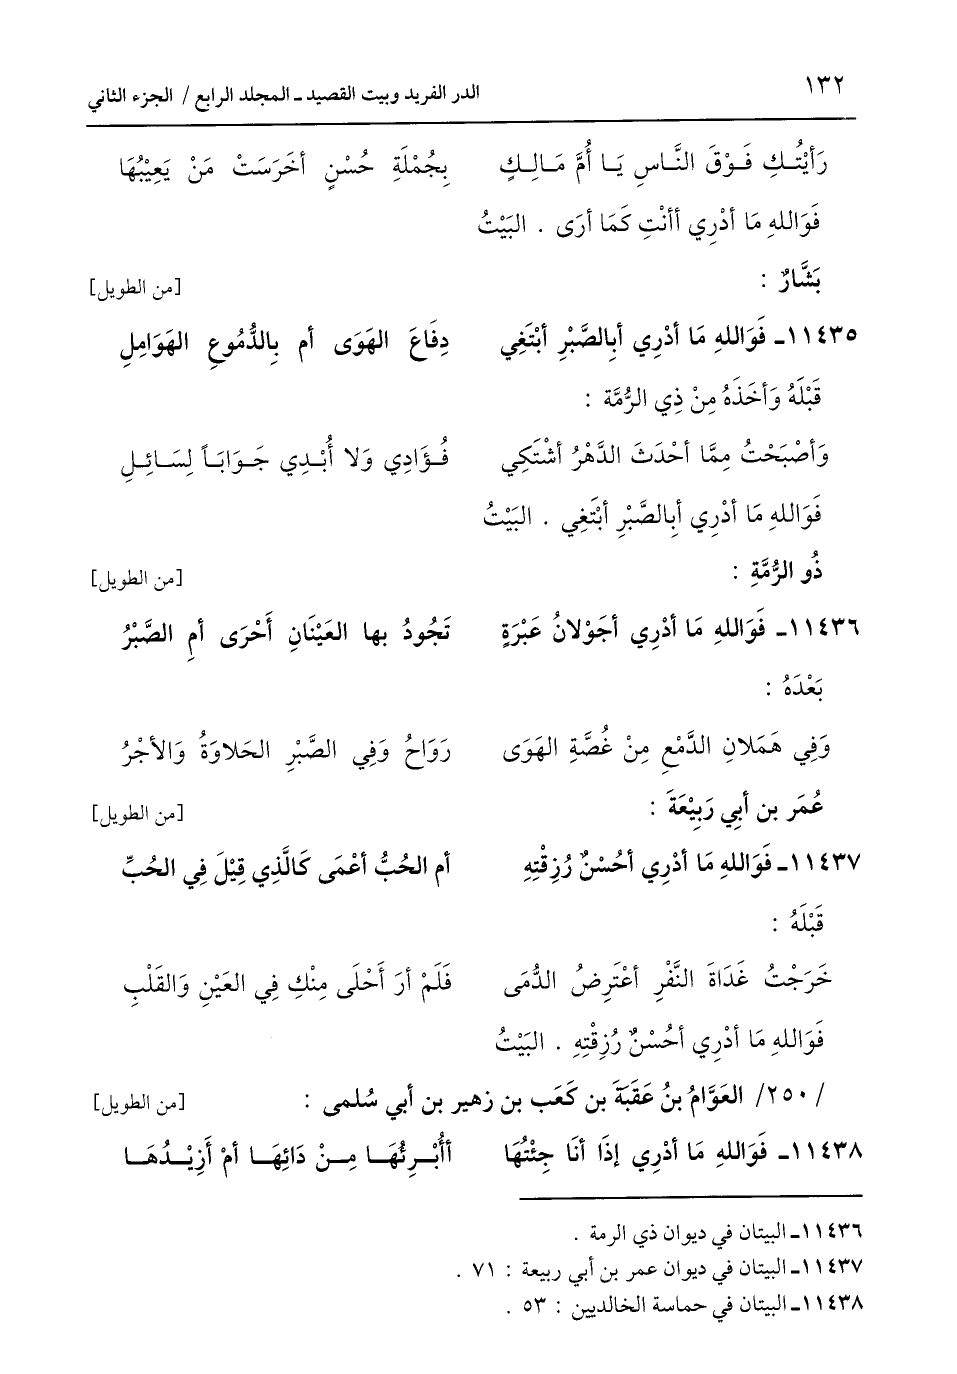 ١٣٢
الدر الفريد وبيت القصيد ـ المجلد الرابع / الجزء الثاني
رَأَيْتُـكِ فَـوْقَ النَّـاسِ يَـا أُمَّ مَـالِـكٍ بِجُمْلَةِ حُسْنٍ أخَرَسَتْ مَنْ يَعِيْبُهَا
فَوَاللهِ مَا أدْرِي أأنْتِ كَمَا أرَى . البَيْتُ
بَشَّارٌ : [من الطويل]
١١٤٣٥ـ فَوَاللهِ مَا أدْرِي أبِالصَّبْرِ أبْتَغِي دِفَاعَ الهَوَى أم بِالدُّمُوعِ الهَوَامِلِ
قَبْلَهُ وَأخَذَهُ مِنْ ذِي الرُّمَّة :
وَأصْبَحْتُ مِمَّا أحْدَثَ الدَّهْرُ أشْتَكِي فُـؤَادِي وَلا أُبْـدِي جَـوَابَـاً لِسَـائِـلِ
فَوَاللهِ مَا أدْرِي أبِالصَّبْرِ أبْتَغِي . البَيْتُ
ذُو الرُّمَّةِ : [من الطويل]
١١٤٣٦ـ فَوَاللهِ مَا أدْرِي أجَوْلانُ عَبْرَةٍ تَجُودُ بها العَيْنَانِ أَحْرَى أمِ الصَّبْرُ
بَعْدَهُ :
وَفِي هَمَلانِ الدَّمْعِ مِنْ غُصَّةِ الهَوَى رَوَاحُ وَفِي الصَّبْرِ الحَلاوَةُ وَالأجْرُ
عُمَر بن أبِي رَبِيْعَةَ : [من الطويل]
١١٤٣٧ـ فَوَاللهِ مَا أدْرِي أحُسْنٌ رُزِقْتِهِ أم الحُبُّ أعْمَى كَالَّذِي قِيْلَ فِي الحُبِّ
قَبْلَهُ :
خَرَجْتُ غَدَاةَ النَّفْرِ أعْتَرِضُ الدُّمَى فَلَمْ أرَ أَحْلَى مِنْكِ فِي العَيْنِ وَالقَلْبِ
فَوَاللهِ مَا أدْرِي أحُسْنٌ رُزِقْتِهِ . البَيْتُ
/ ٢٥٠/ العَوَّامُ بنُ عَقَبَةَ بن كَعَب بن زهير بن أبي سُلمى : [من الطويل]
١١٤٣٨ـ فَوَاللهِ مَا أدْرِي إذَا أنَا جِئْتُهَا أأُبْـرِئُهَـا مِـنْ دَائِهَـا أمْ أزِيْـدُهَـا
١١٤٣٦ـ البيتان في ديوان ذي الرمة .
١١٤٣٧ـ البيتان في ديوان عمر بن أبي ربيعة : ٧١ .
١١٤٣٨ـ البيتان في حماسة الخالديين : ٥٣ .